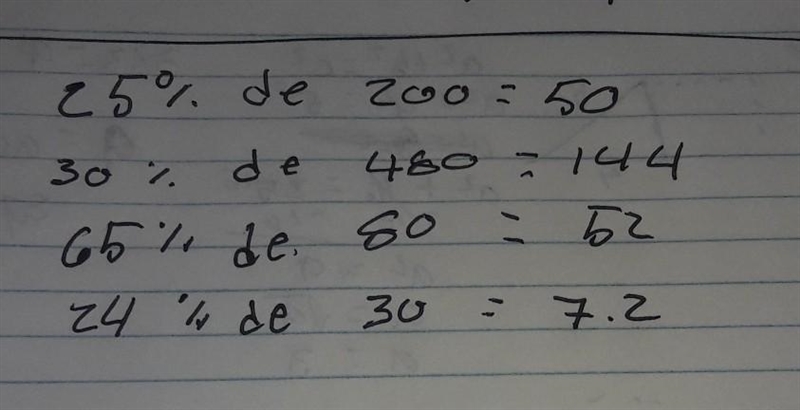 25% de 200 = 50
30% de 480 = 144
65% de. 80 = 52
24% de 30 = 7.2